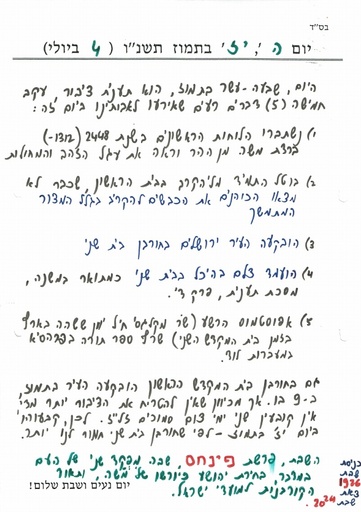 בס״ד
יום ה׳, י״ז בתמוז תשנ״ו ( 4 ביולי)
היום, שבעה-עשר בתמוז, הוא תענית ציבור, עקב
חמישה (5) דברים רעים שאירעו לאבותינו ביום זה:
1) נשתברו הלוחות הראשונים בשנת 2448 (1312-)
ברדת משה מן ההר וראה את עגל הזהב והמחולות
2) בוטל התמיד מליהקרב בבית הראשון, שכבר לא
מצאו הכוהנים את הכבשים להקריב בגלל המצור
המתמשך
3) הובקעה העיר ירושלים בחורבן בית שני
4) הועמד צלם בהיכל בבית שני כמתואר במשנה,
מסכת תענית, פרק ד׳.
5) אפוסטמוס הרשע (שר מקלגס׳ חיל יוון ששהה בארץ
בזמן בית המקדש השני) שרף ספר תורה בפרהסיא
במעברות לוד.
גם בחורבן בית המקדש הראשון הובקעה העיר בתמוז,
ב-9 בו. אך מכיוון שאין להטריח את הציבור יותר מדי,
אין קובעין שני ימי צום סמוכים זל״ז. לכן, קבעוהו
ביום יז בתמוז - לפי שחורבן בית שני חמור לנו יותר.
השבת, פרשת פינחס, שבה מפקד שני של העם
במדבר, בחירת יהושע כיורשו של משה, ותאור
הקורבנות למועדי ישראל.
יום נעים ושבת שלום!
כניסת
שבת
1926
שבת
2024